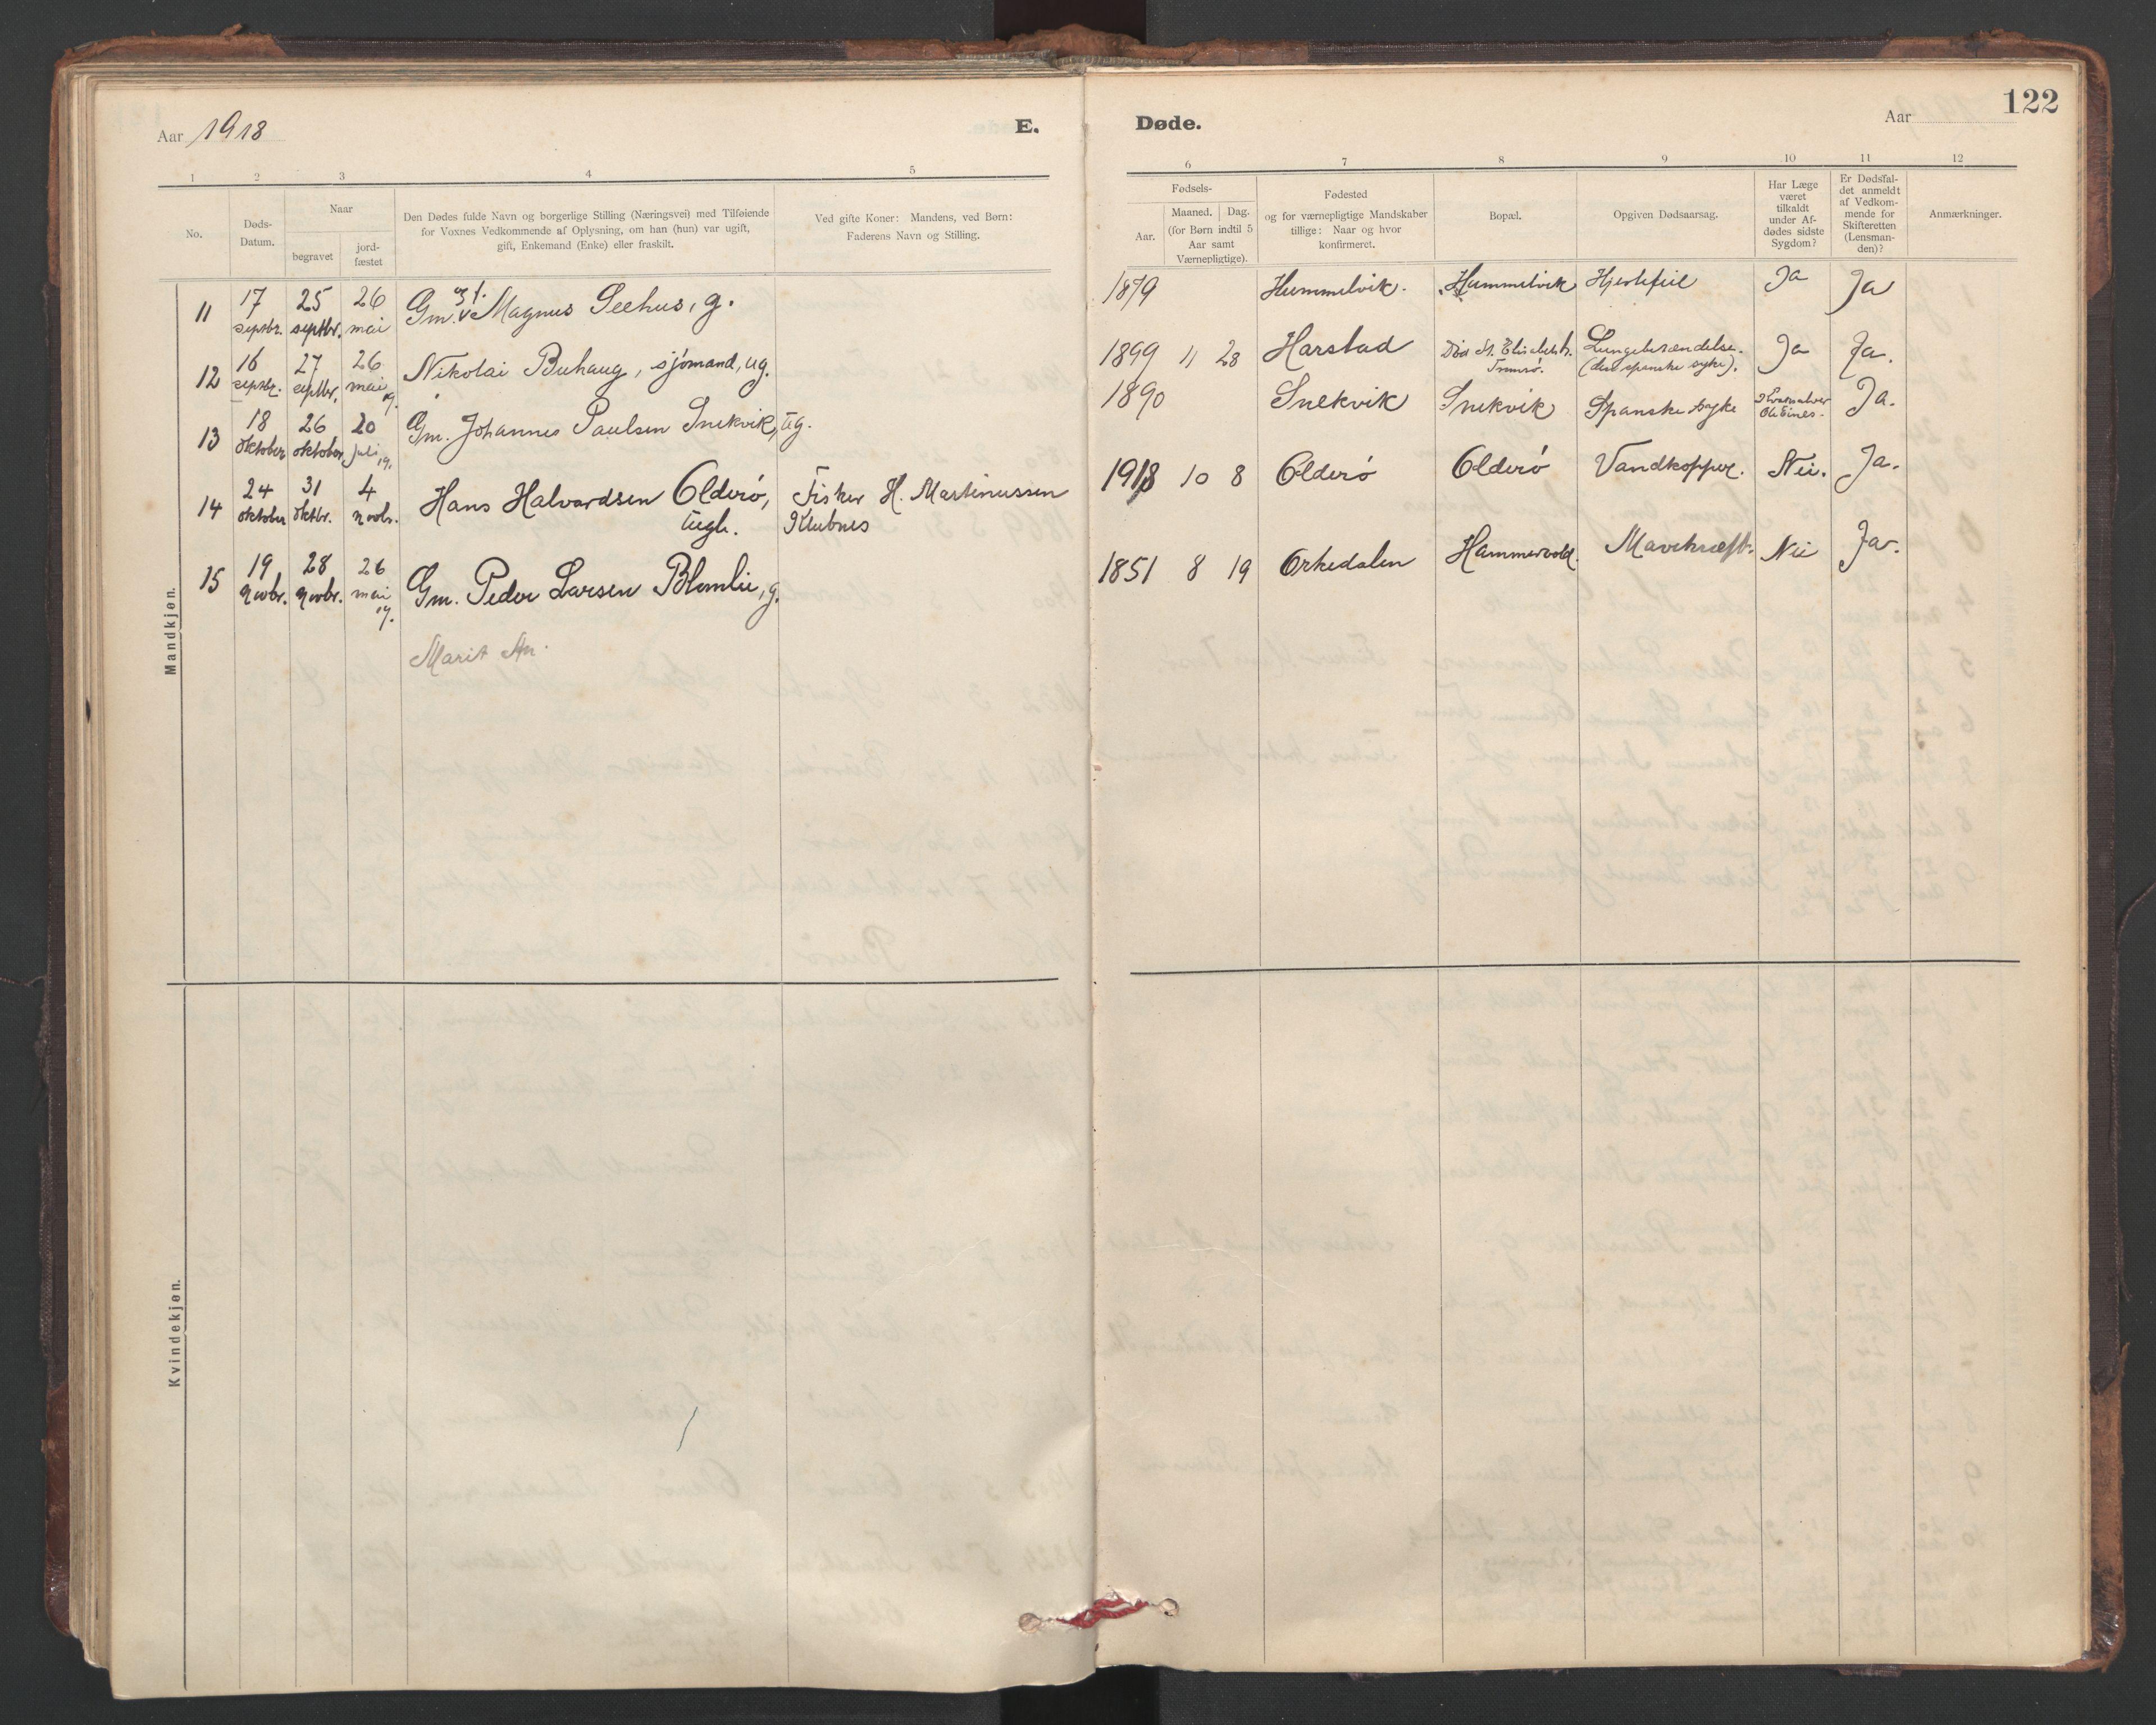 Aar 1918
E.
1 2 3 4 5
No.
Døds-
Datum.
Naar
begravet
jord-
fæstet
Den Dødes fulde Navn og borgerlige Stilling (Næringsvei) med Tilføiende
for Voxnes Vedkommende af Oplysning, om han (hun) var ugift,
gift, Enkemand (Enke) eller fraskilt.
Ved gifte Koner: Mandens, ved Børn:
Faderens Navn og Stilling.
Mandkjøn.
11 17 septbr. 25 septbr. 26 mai Gm. Magnus Seehus, g.
12 16 septbr. 27 septbr. 26 mai 19. Nikolai Buhaug, sjömand, ug.
13 18 oktober 26 oktober 20 juli 19. Gm. Johannes Paulsen Snekvik, ug.
14 24 oktober 31 oktbr. 4 novbr. Hans Halvardsen Olderö, Fisker H. Martinussen
Klubnes
15 19 novbr. 28 novbr. 26 mai 19. Gm. Peder Larsen Blomlie, g.
Marit An.
Kvindekjøn.
Døde.
Aar
122
6 7 8 9 10 11 12
Fødsels-
Aar.
Maaned. Dag.
(for Børn indtil 5
Aar samt
Værnepligtige).
Fødested
og for værnepligtige Mandskaber
tillige: Naar og hvor
konfirmeret.
Bopæl.
Opgiven Dødsaarsag.
Har Læge
været
tilkaldt
under Af-
dødes sidste
Sygdom?
Er Dødsfal-
det anmeldt
af Vedkom-
mende for
Skifteretten
(Lensman-
den)?
Anmærkninger.
1879 Hummelvik. Hummelvik Hjertefeil Ja Ja
1899 11 28 Harstad Död St. Elisabeth. Tromsö. Lungebetændelse. (den spanske syke). Ja Ja.
1890 Snekvik Snekvik Spanske syke Ja.
1918 10 8 Olderö Olderö Vandkopper. Nei. Ja.
1851 8 19 Orkedalen Hammervold. Mavekræft. Nei Ja.